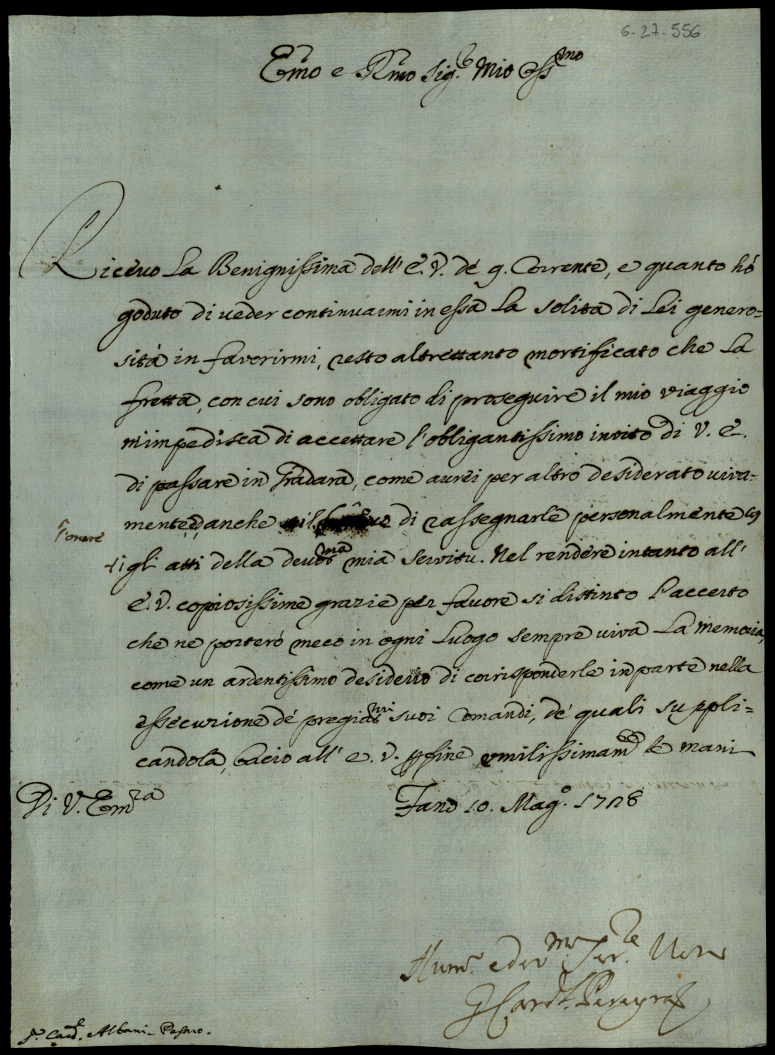 6-27-556
Emo e Rmo Sig.re Mio Ossmo
Ricevo La Benignissima dell' E. V. de' 9. Corrente, e quanto hò
goduto di veder continuarmi in essa La solita di Lei genero=
sità in favorirmi, resto altrettanto mortificato che La
fretta, con cui sono obligato di proseguire il mio viaggio
m'impedisca di accettare l'obligantissimo invito di V. E.
di passare in Gradara, come aurei per altro desiderato viva=
mente, anche di rassegnarle personalmente
l'onore
gli atti della devotma mia servitu. Nel rendere intanto all'
E. V. copiosissime grazie per favore si distinto l'accerto
che ne porterò meco in ogni Luogo sempre viva La memoria,
come un ardentissimo desiderio di corrisponderle in parte nella
essecuzione de' pregiatmi suoi Comandi, de' quali suppli=
candola, bacio all' E. V. per fine umilissimamte le mani
Di V. Emza
Fano 10. Mago. 1728
Humo. e devmo Serre Vero
G Cardl. Pereyra
Sr. Card.le Albani - Pesaro.